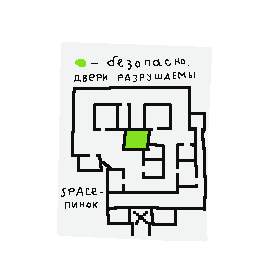 - безопасно.
двери разрушаемы
space-
пинок